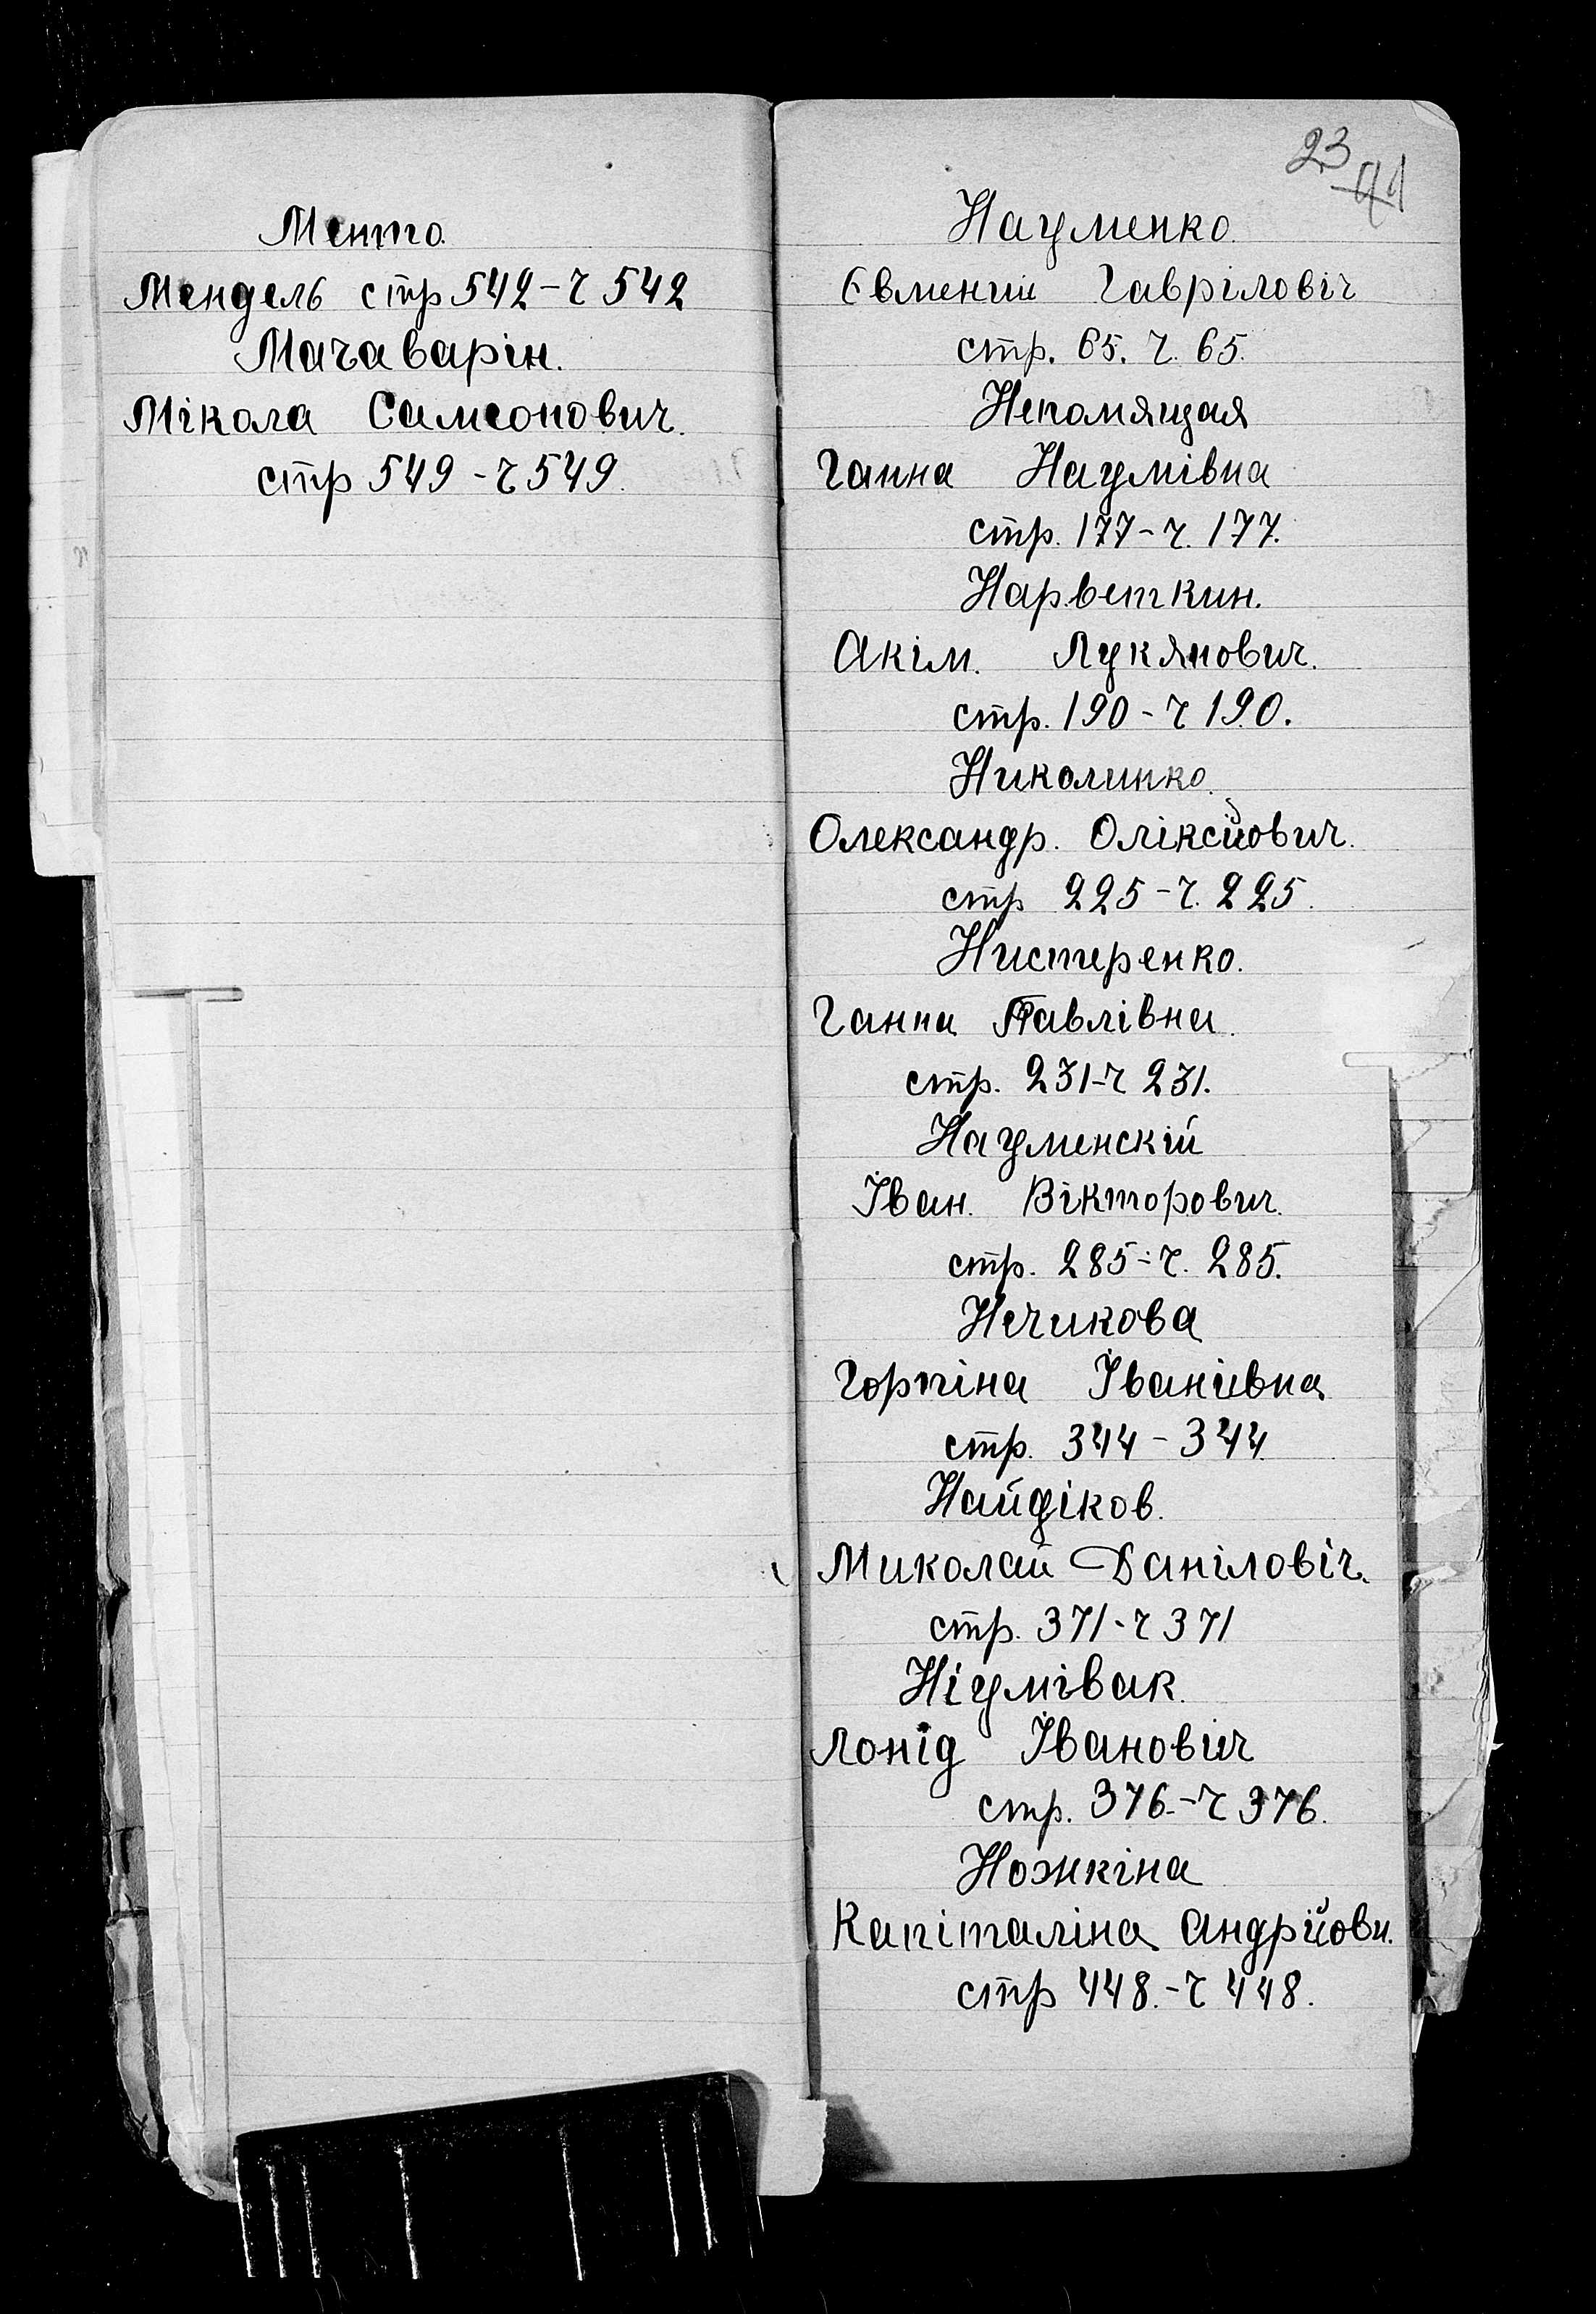 Менто.
Мендель стр 542 - ч 542
Мачаварін.
Мікола Самсонович.
стр 549 - ч 549.
23
Науменко.
Євмений Гавріловіч
стр. 65. ч. 65.
Непомящая
Ганна Наумівна
стр. 177 - ч. 177.
Нарветкин.
Акім. Лукянович.
стр. 190 - ч 190.
Николинко.
Олександр. Оліксійович.
стр 225 - ч. 225.
Нистеренко.
Ганна Павлівна.
стр. 231 - ч 231.
Науменскій
Іван. Вікторович.
стр. 285 - ч. 285.
Нечикова
Горпіна Іванівна
стр. 344 - 344
Найдіков.
Миколай Даніловіч.
стр. 371 - ч 371
Ніумівак.
Лонід Івановіч
стр. 376. - ч 376.
Ножкіна
Капіталіна Андрійовн.
стр 448. - ч 448.